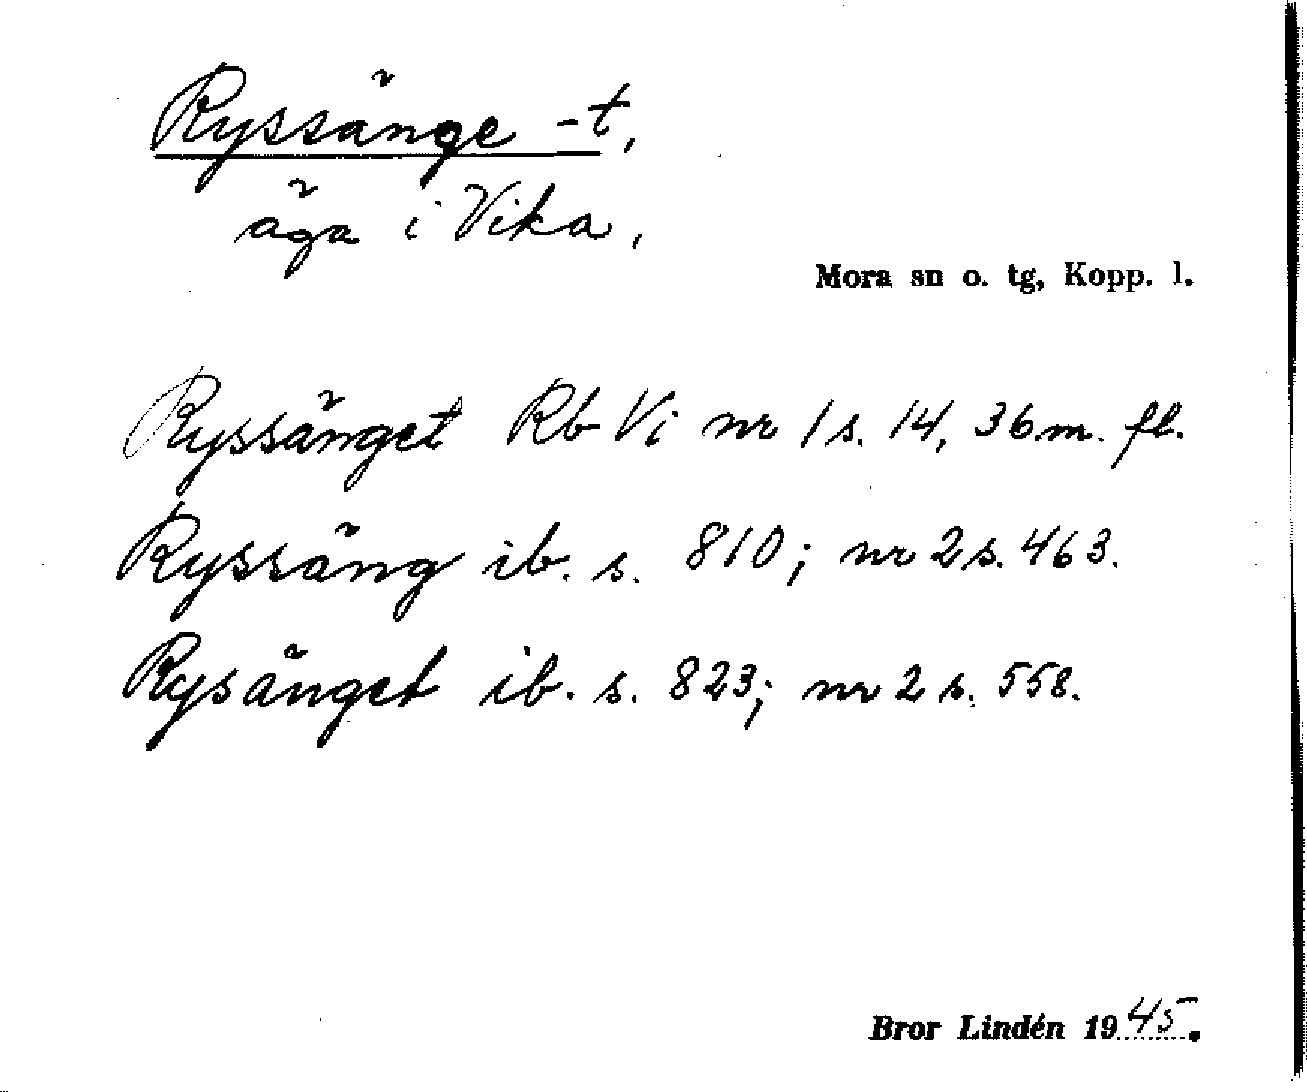 Ryssänge -t,
äga i Vika,
Mora sn o. tg, Kopp. l.
Ryssänget Rb Vi nr 1 s. 14, 36 m. fl.
Ryssäng ib. s. 810; nr 2 s. 463.
Rysänget ib. s. 823; nr 2 s. 558.
Bror Lindén 1945.